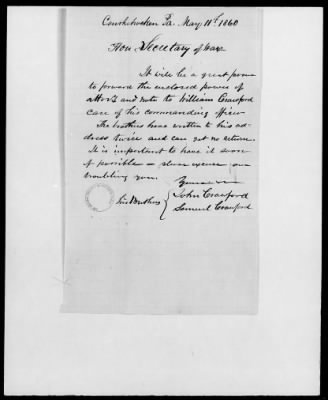 Conshohocken Pa. May 18th 1860
Hon Secretary of War
It will be a great favor
to forward the enclosed power of
Att'y and note to William Crawford
care of his commanding officer
The brothers have written to his ad-
dress twice and can get no return
It is important to have it soon
if possible - please excuse our
troubling you.
Yours
his brothers { John Crawford
Samuel Crawford